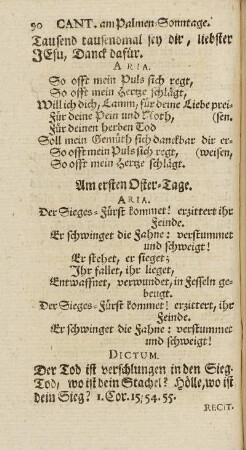 90 CANT. am Palmen-Sonntage.
Tausend tausendmal sey dir, liebster
JEsu, Danck dafür.
ARIA.
So offt mein Puls sich regt,
So offt mein Hertze schlägt,
Will ich dich, Lamm, für deine Liebe prei-
Für deine Pein und Noth, (sen.
Für deinen herben Tod
Soll mein Gemüth sich danckbar dir er-
So offt mein Puls sich regt, (weisen,
So offt mein Hertze schlägt.
Am ersten Oster-Tage.
ARIA.
Der Sieges-Fürst kommet! erzittert ihr
Feinde.
Er schwinget die Fahne: verstummet
und schweigt!
Er stehet, er sieget;
Ihr fallet, ihr lieget,
Entwaffnet, verwundet, in Fesseln ge-
beugt.
Der Sieges-Fürst kommet! erzittert, ihr
Feinde.
Er schwinget die Fahne: verstummet
und schweigt!
DICTUM.
Der Tod ist verschlungen in den Sieg.
Tod, wo ist dein Stachel? Hölle, wo ist
dein Sieg? 1. Cor. 15, 54. 55.
RECIT.